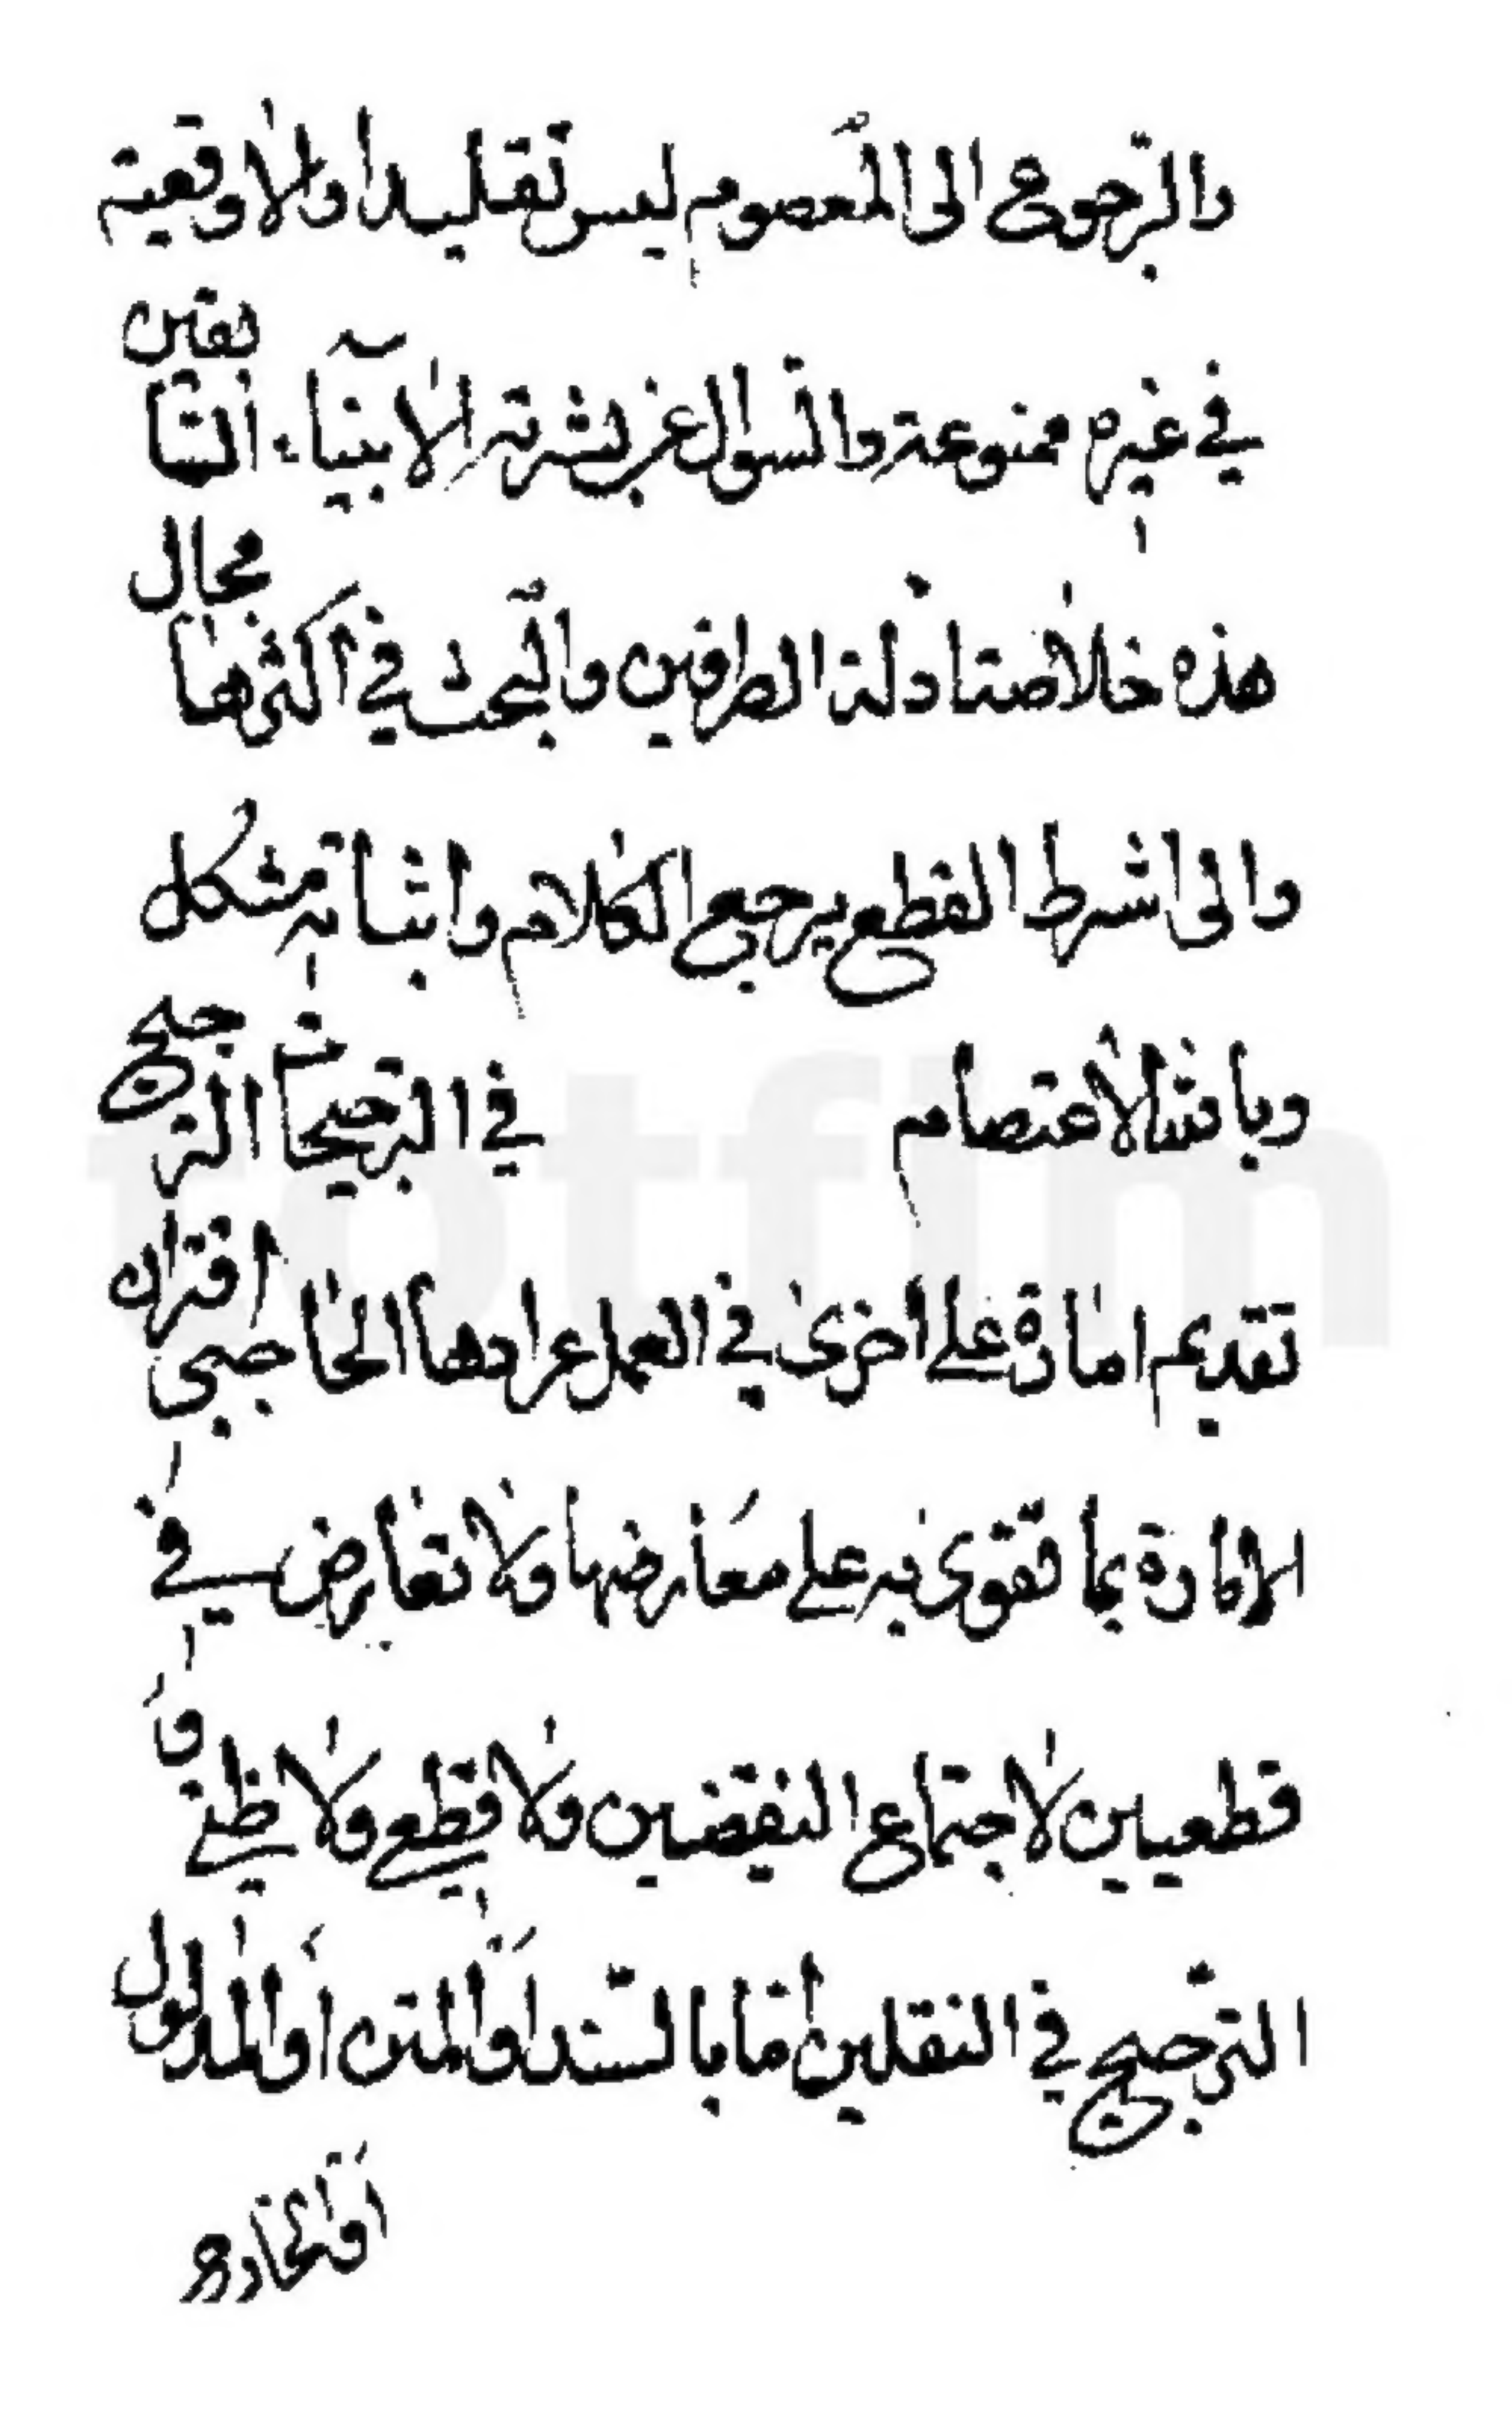 والرجوع الى المعصوم ليس تقليدا والاوقعية
في غيره ممنوعة والسوال عن بشرية الانبياء السابقين
هذه خلاصة ادلة الطرفين والبحث في اكثرها مجال
والى اشرط القطع يرجع الكلام واثباته مشكل
وبالله الاعتصام في الترجيحات الترجيح
تقديم امارة على اخرى في العمل عرادها الحاجبى اقتران
الامارة بما تقوى به على معارضها ولا تعارض في
قطعيين لاجتماع النقيضين ولا قطعي ولا ظني و
الترجيح في النقلين اما بالسند او المتن او المدلول
او الخارج